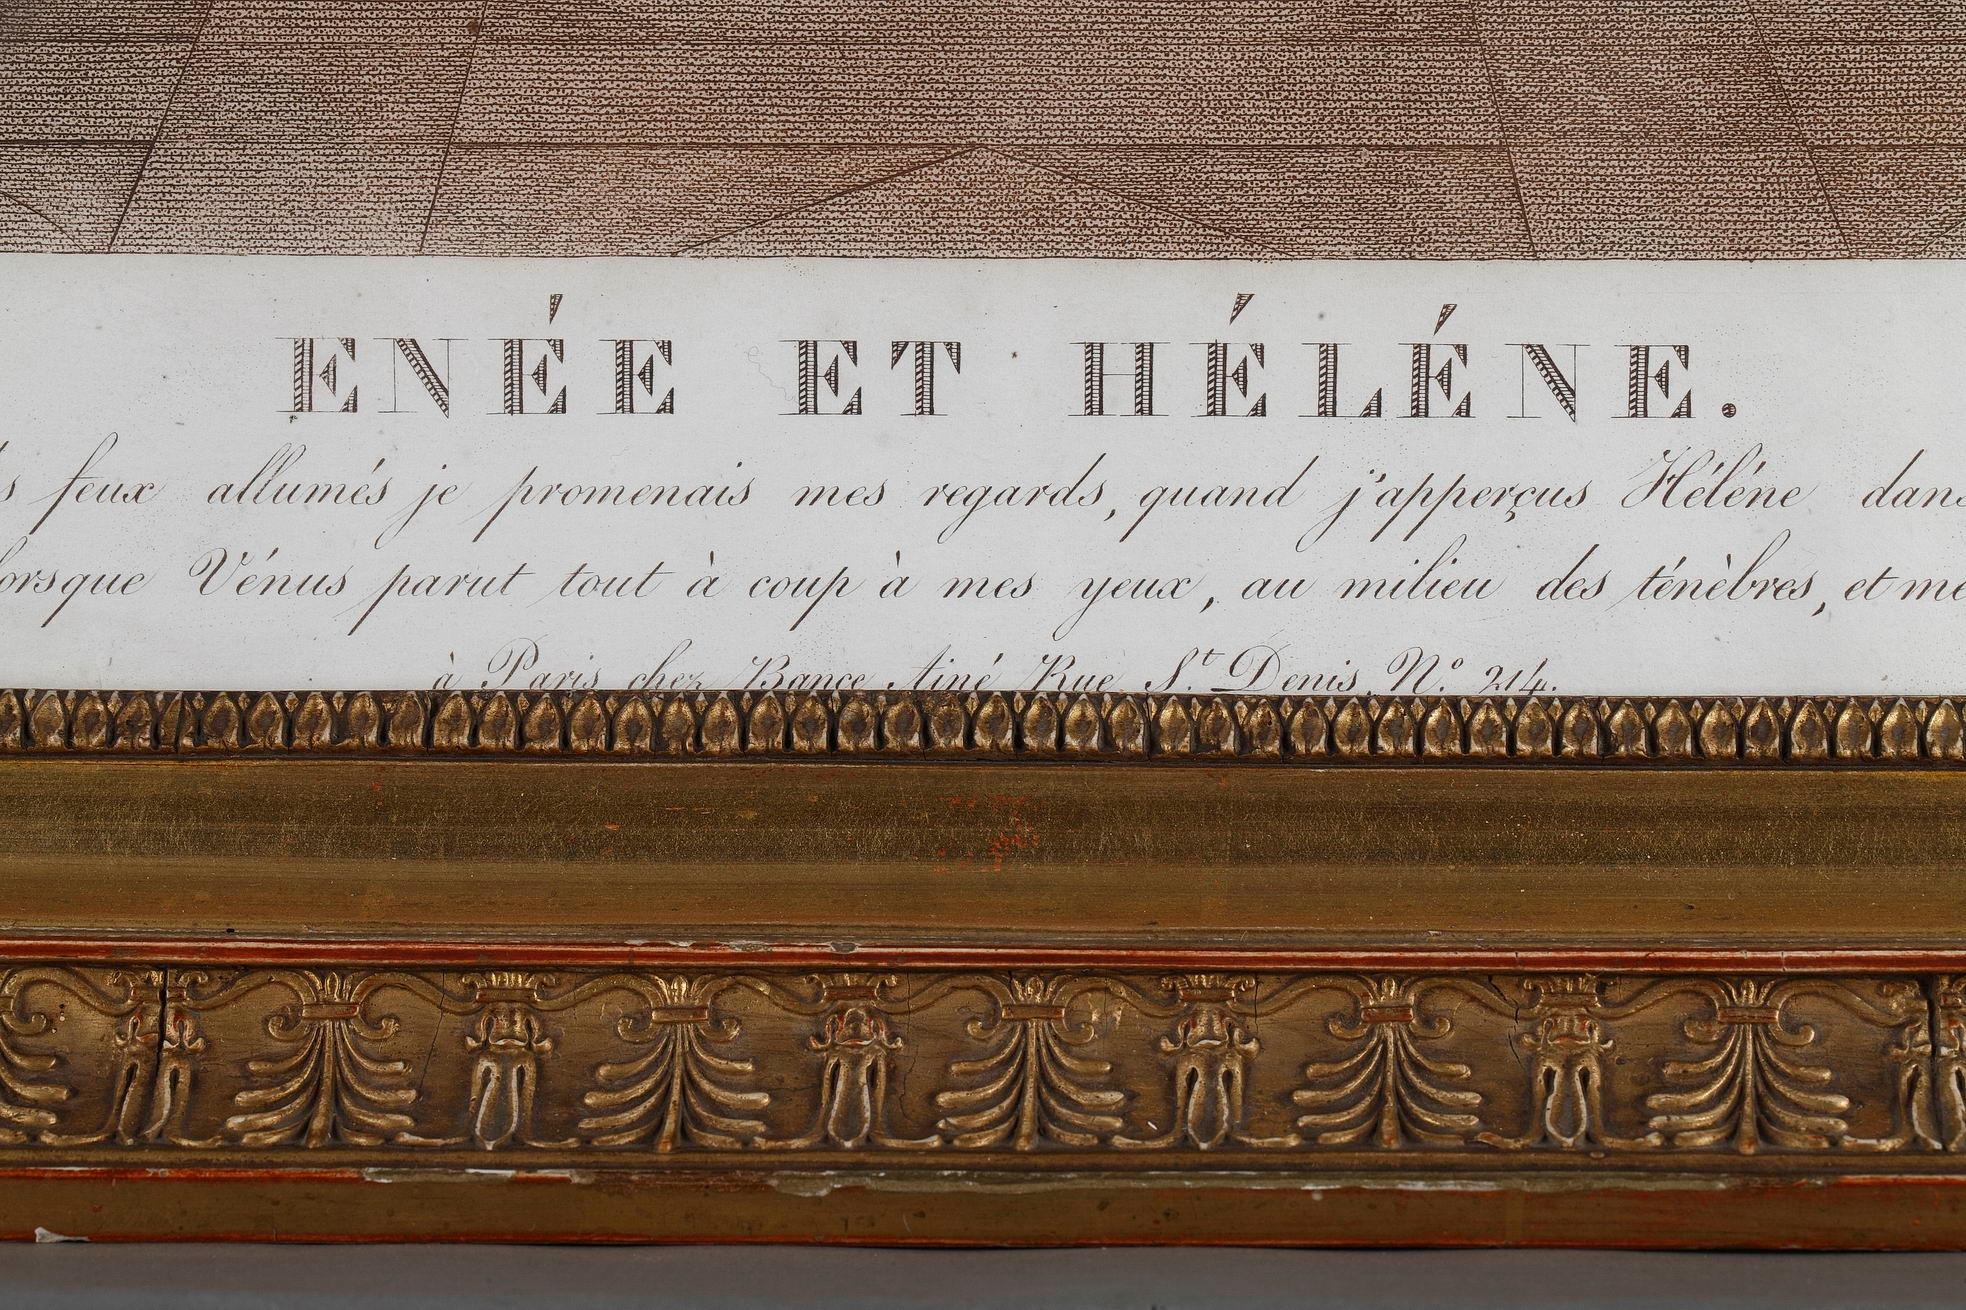 ENÉE ET HÉLÉNE.
feux allumés je promenais mes regards, quand j'apperçus Héléne dans
lorsque Vénus parut tout à coup à mes yeux, au milieu des ténèbres, et me
à Paris chez Bance Ainé Rue S.t Denis N.° 214.